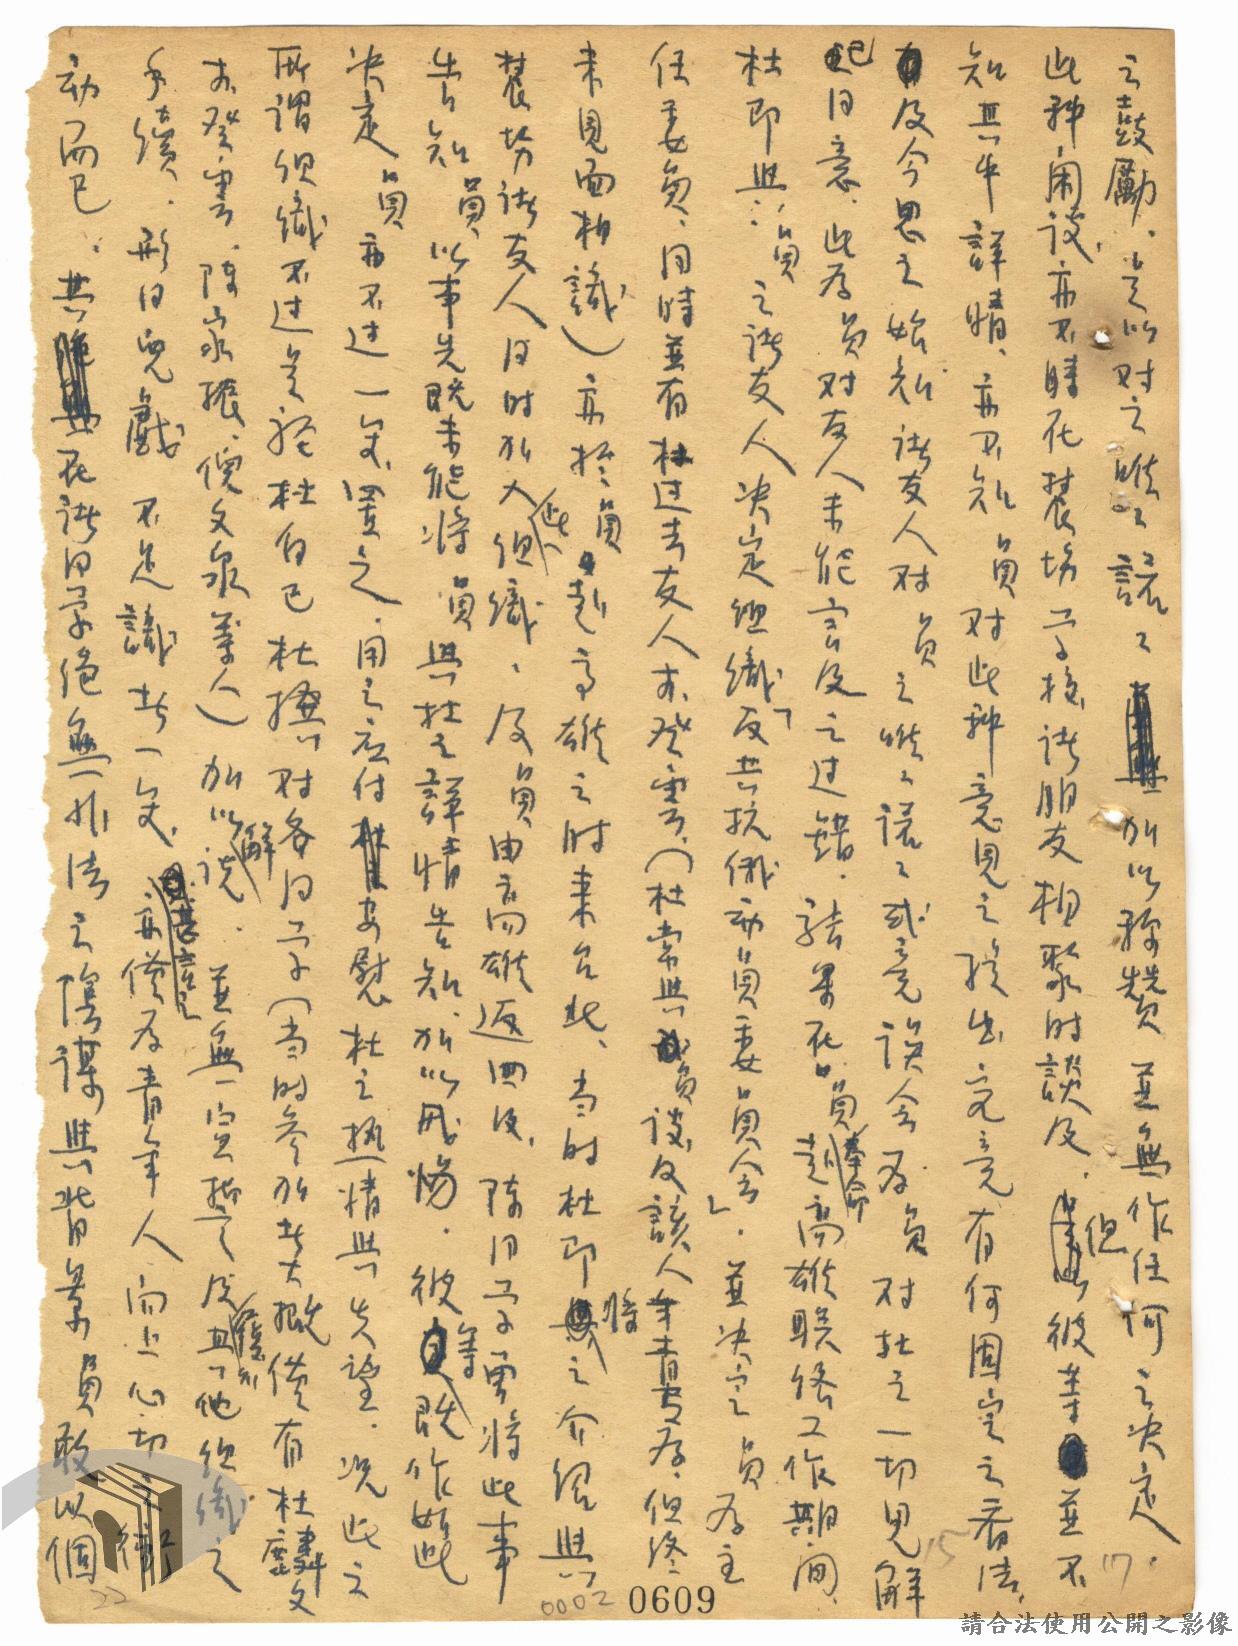 之鼓勵、是以对之唯々諾々 加以称贊 並無作任何之決定。
此种閑談、亦不時在農場学校諸朋友相聚時談及、但彼等並不
知其中詳情、亦不知員对此种意見之提出究竟有何固定之看法、
及今思之始知諸友人对員之唯々諾々或竟誤会為員对杜之一切見解
已同意、此為員对友人未能言及之过錯、結果在員奉命赴高雄联絡工作期间、
杜即與員之諸友人決定組織「反共抗俄动員委員会」、並決定員為主
任委員、同時並有杜过去友人李癸雲、(杜常與員談及該人年青有為、但終
未見面相識)亦於員赴高雄之时来台北、当时杜即將之介紹與
農場諸友人同时加入此組織、及員由高雄返回後、陳同学曾將此事
告知員、以事先既未能將員與杜之詳情告知、加以 彼等既作如此
決定、員亦不过一笑置之、用之应付安慰杜之热情與失望、况此之
所謂組織不过是経杜自己杜撰、对各同学(当时参加者大概僅有杜麟文
李癸雲、陳家振、倪文泉等人)加以說解、並無一定 及其他組織之
手續、形同兒戲 不足識者一笑、亦僅為青年人向上心切之衝
动而已、其在諸同学絕無一非法之陰謀與背景、員敢以個
17
15
22
0002 0609
請合法使用公開之影像